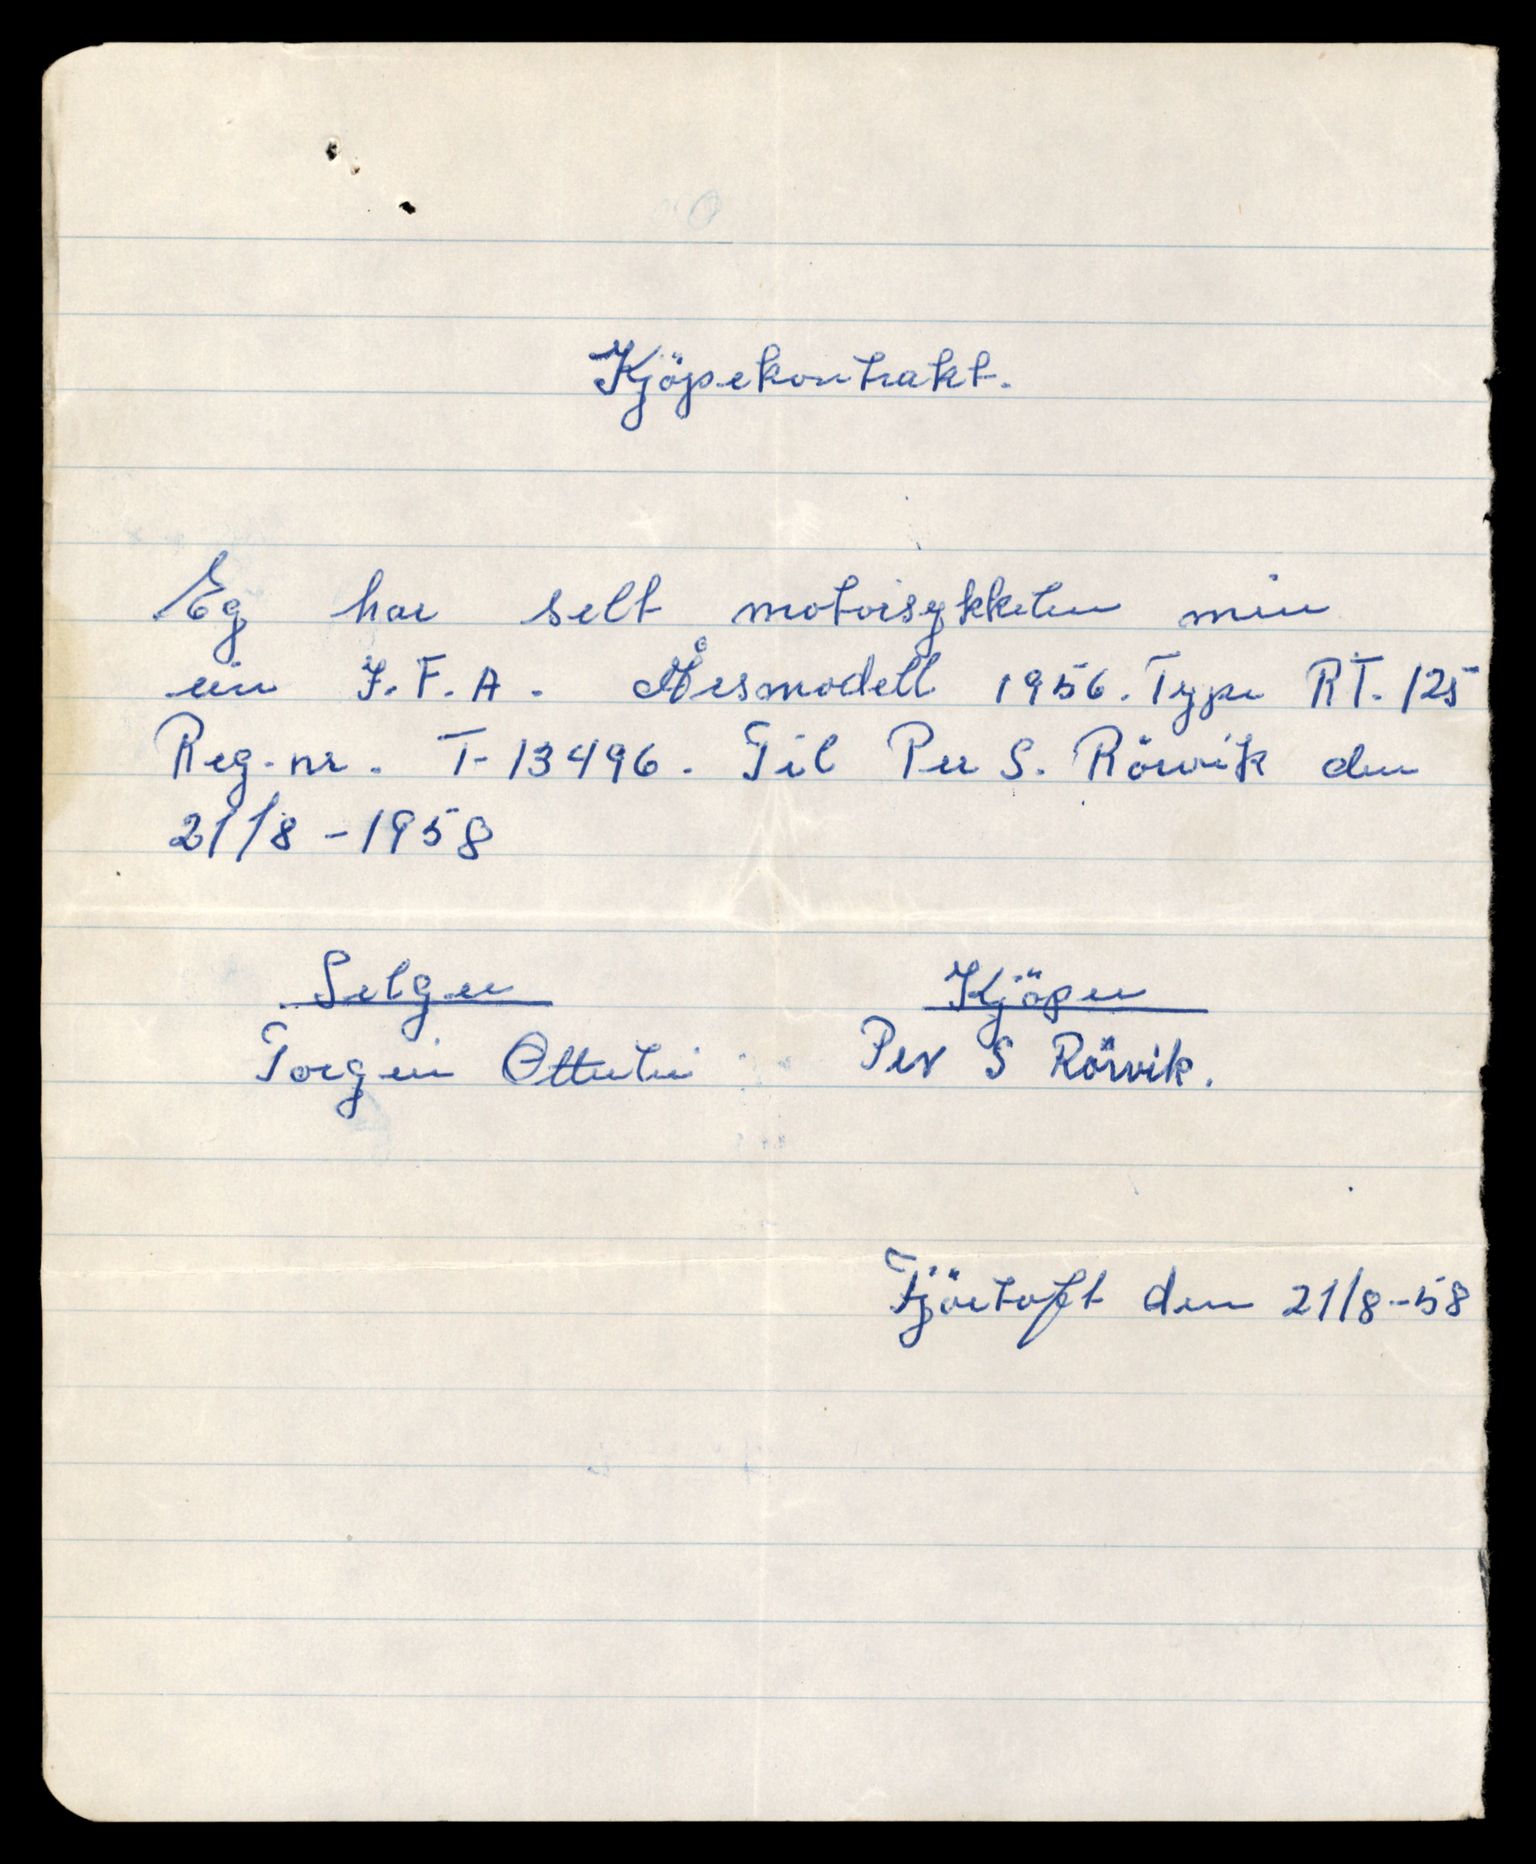 Kjöpekontrakt.
Eg har selt motorsykkelen min
ein I.F.A. Årsmodell 1956. Type RT. 125
Reg.nr. T-13496. Til Per S. Rörvik den
21/8 - 1958
Selger Kjöper
Torgeir Otterlei Per S Rörvik.
Fjörtoft den 21/8-58